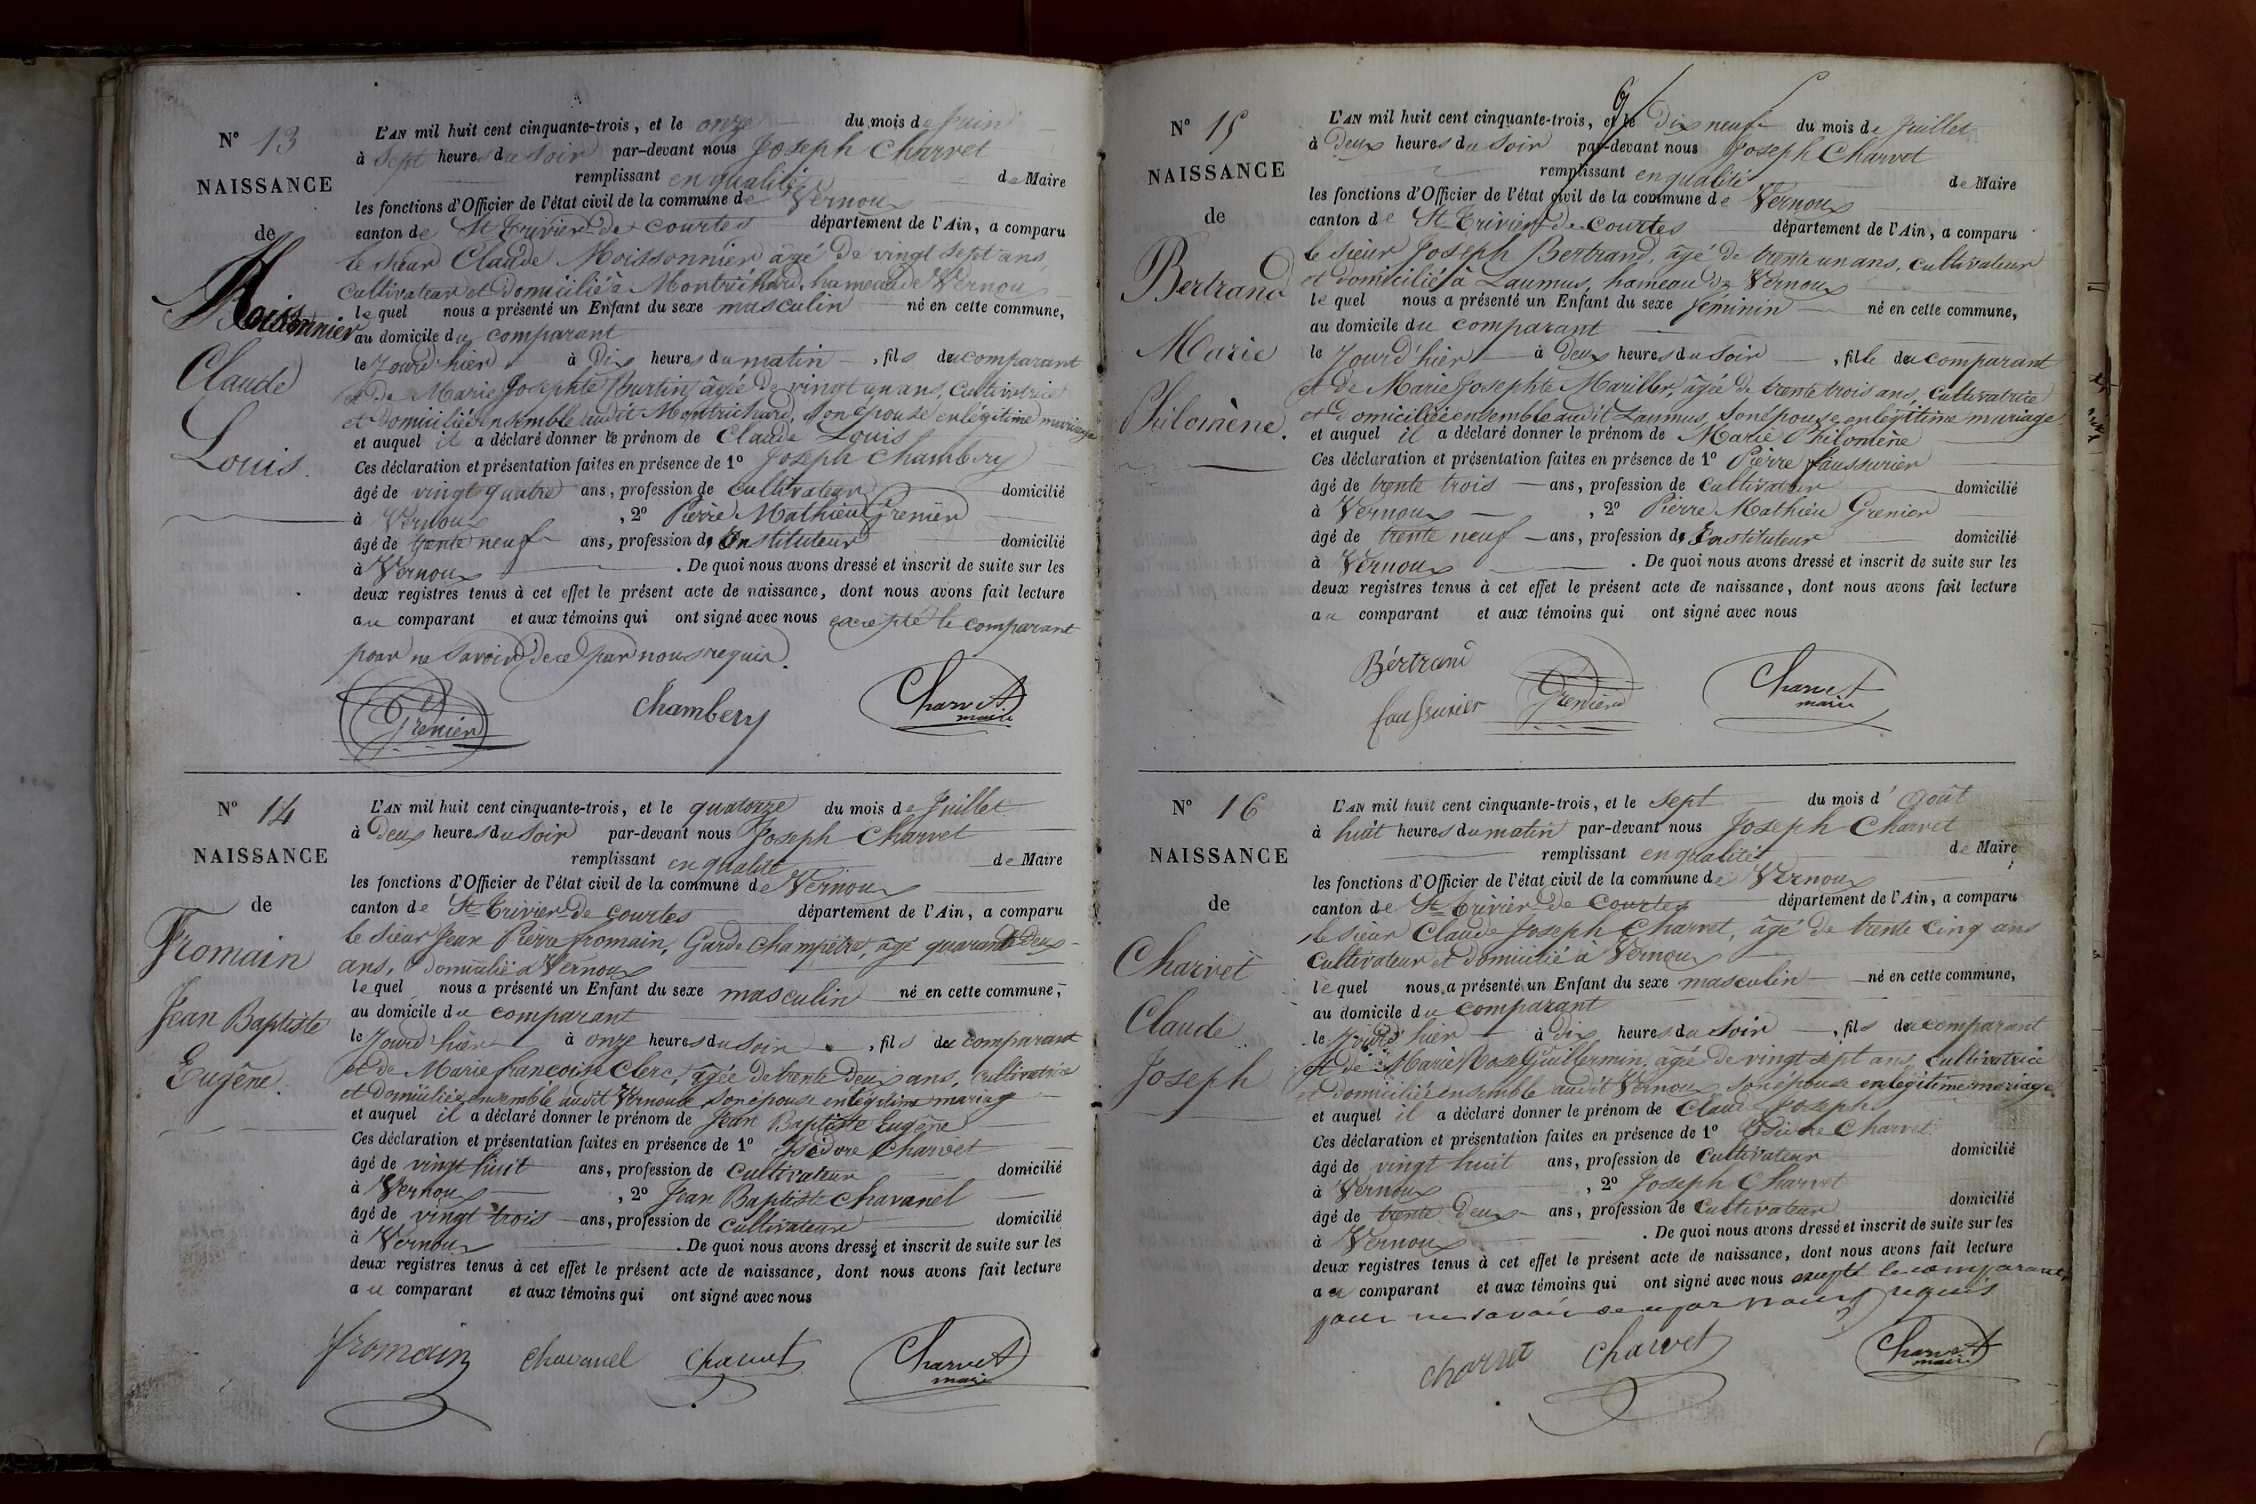 N° 13
NAISSANCE
de
Moissonnier
Claude
Louis.
L'AN mil huit cent cinquante-trois, et le onze du mois de Juin
à sept heures du soir par-devant nous Joseph Charvet
remplissant en qualité de Maire
les fonctions d'Officier de l'état civil de la commune de Vernoux
canton de St Trivier de Courtes département de l'Ain, a comparu
le sieur Claude Moissonnier âgé de vingt sept ans,
Cultivateur et domicilié à Montrichard, hameau de Vernoux
lequel nous a présenté un Enfant du sexe masculin né en cette commune,
au domicile du comparant
le Jourd'hier à Dix heures du matin, fils du comparant
et de Marie Josephte Burtin, âgée de vingt un ans, Cultivatrice
et domiciliée ensemble audit Montrichard, son épouse en légitime mariage
et auquel il a déclaré donner le prénom de Claude Louis
Ces déclaration et présentation faites en présence de 1° Joseph Chambery
âgé de vingt quatre ans, profession de cultivateur domicilié
à Vernoux, 2° Pierre Mathieu Grenier
âgé de trente neuf ans, profession d'Instituteur domicilié
à Vernoux. De quoi nous avons dressé et inscrit de suite sur les
deux registres tenus à cet effet le présent acte de naissance, dont nous avons fait lecture
au comparant et aux témoins qui ont signé avec nous excepté le comparant
pour ne savoir de ce par nous requis.
Grenier Chambery Charvet
maire
N° 14
NAISSANCE
de
Fromain
Jean Baptiste
Eugêne.
L'AN mil huit cent cinquante-trois, et le quatorze du mois de Juillet
à Deux heures du soir par-devant nous Joseph Charvet
remplissant en qualité de Maire
les fonctions d'Officier de l'état civil de la commune de Vernoux
canton de St Trivier de Courtes département de l'Ain, a comparu
le sieur Jean Pierre fromain, Garde champêtre, âgé quarante deux
ans, domicilié à Vernoux
lequel nous a présenté un Enfant du sexe masculin né en cette commune,
au domicile du comparant
le Jourd'hier à onze heures du soir, fils du comparant
et de Marie francoise Clerc, âgée de trente deux ans, cultivatrice
et domiciliée ensemble audit Vernoux son épouse en légitime mariage
et auquel il a déclaré donner le prénom de Jean Baptiste Eugêne
Ces déclaration et présentation faites en présence de 1° Isidore Charvet
âgé de vingt huit ans, profession de cultivateur domicilié
à Vernoux, 2° Jean Baptiste Chavanel
âgé de vingt trois ans, profession de cultivateur domicilié
à Vernoux. De quoi nous avons dressé et inscrit de suite sur les
deux registres tenus à cet effet le présent acte de naissance, dont nous avons fait lecture
au comparant et aux témoins qui ont signé avec nous
fromain Chavanel Charvet Charvet
maire
N° 15
NAISSANCE
de
Bertrand
Marie
Philomène.
L'AN mil huit cent cinquante-trois, et le Dix neuf du mois de Juillet
à Deux heures du soir par-devant nous Joseph Charvet
remplissant en qualité de Maire
les fonctions d'Officier de l'état civil de la commune de Vernoux
canton de St Trivier de Courtes département de l'Ain, a comparu
le sieur Joseph Bertrand, âgé de trente un ans, cultivateur
et domicilié à Laumus, hameau de Vernoux
lequel nous a présenté un Enfant du sexe féminin né en cette commune,
au domicile du comparant
le Jourd'hier à Deux heures du soir, fille du comparant
et de Marie Josephte Mariller, âgée de trente trois ans, cultivatrice
et domiciliée ensemble audit Laumus, son épouse en légitime mariage
et auquel il a déclaré donner le prénom de Marie Philomène
Ces déclaration et présentation faites en présence de 1° Pierre faussurier
âgé de trente trois ans, profession de cultivateur domicilié
à Vernoux, 2° Pierre Mathieu Grenier
âgé de trente neuf ans, profession d'Instituteur domicilié
à Vernoux. De quoi nous avons dressé et inscrit de suite sur les
deux registres tenus à cet effet le présent acte de naissance, dont nous avons fait lecture
au comparant et aux témoins qui ont signé avec nous
Bértrand
faussurier Grenier Charvet
maire
N° 16
NAISSANCE
de
Charvet
Claude
Joseph
L'AN mil huit cent cinquante-trois, et le sept du mois d'Août
à huit heures du matin par-devant nous Joseph Charvet
remplissant en qualité de Maire
les fonctions d'Officier de l'état civil de la commune de Vernoux
canton de St Trivier de Courtes département de l'Ain, a comparu
le sieur Claude Joseph Charvet, âgé de trente cinq ans
Cultivateur et domicilié à Vernoux
lequel nous a présenté un Enfant du sexe masculin né en cette commune,
au domicile du comparant
le Jourd'hier à dix heures du soir, fils du comparant
et de Marie Rose Guillermin, âgée de vingt sept ans, cultivatrice
et domiciliée ensemble audit Vernoux son épouse en légitime mariage
et auquel il a déclaré donner le prénom de Claude Joseph
Ces déclaration et présentation faites en présence de 1° Isidore Charvet
âgé de vingt huit ans, profession de Cultivateur domicilié
à Vernoux, 2° Joseph Charvet
âgé de trente Deux ans, profession de Cultivateur domicilié
à Vernoux. De quoi nous avons dressé et inscrit de suite sur les
deux registres tenus à cet effet le présent acte de naissance, dont nous avons fait lecture
au comparant et aux témoins qui ont signé avec nous excepté le comparant
pour ne savoir de ce par nous requis
Charvet Charvet Charvet
maire